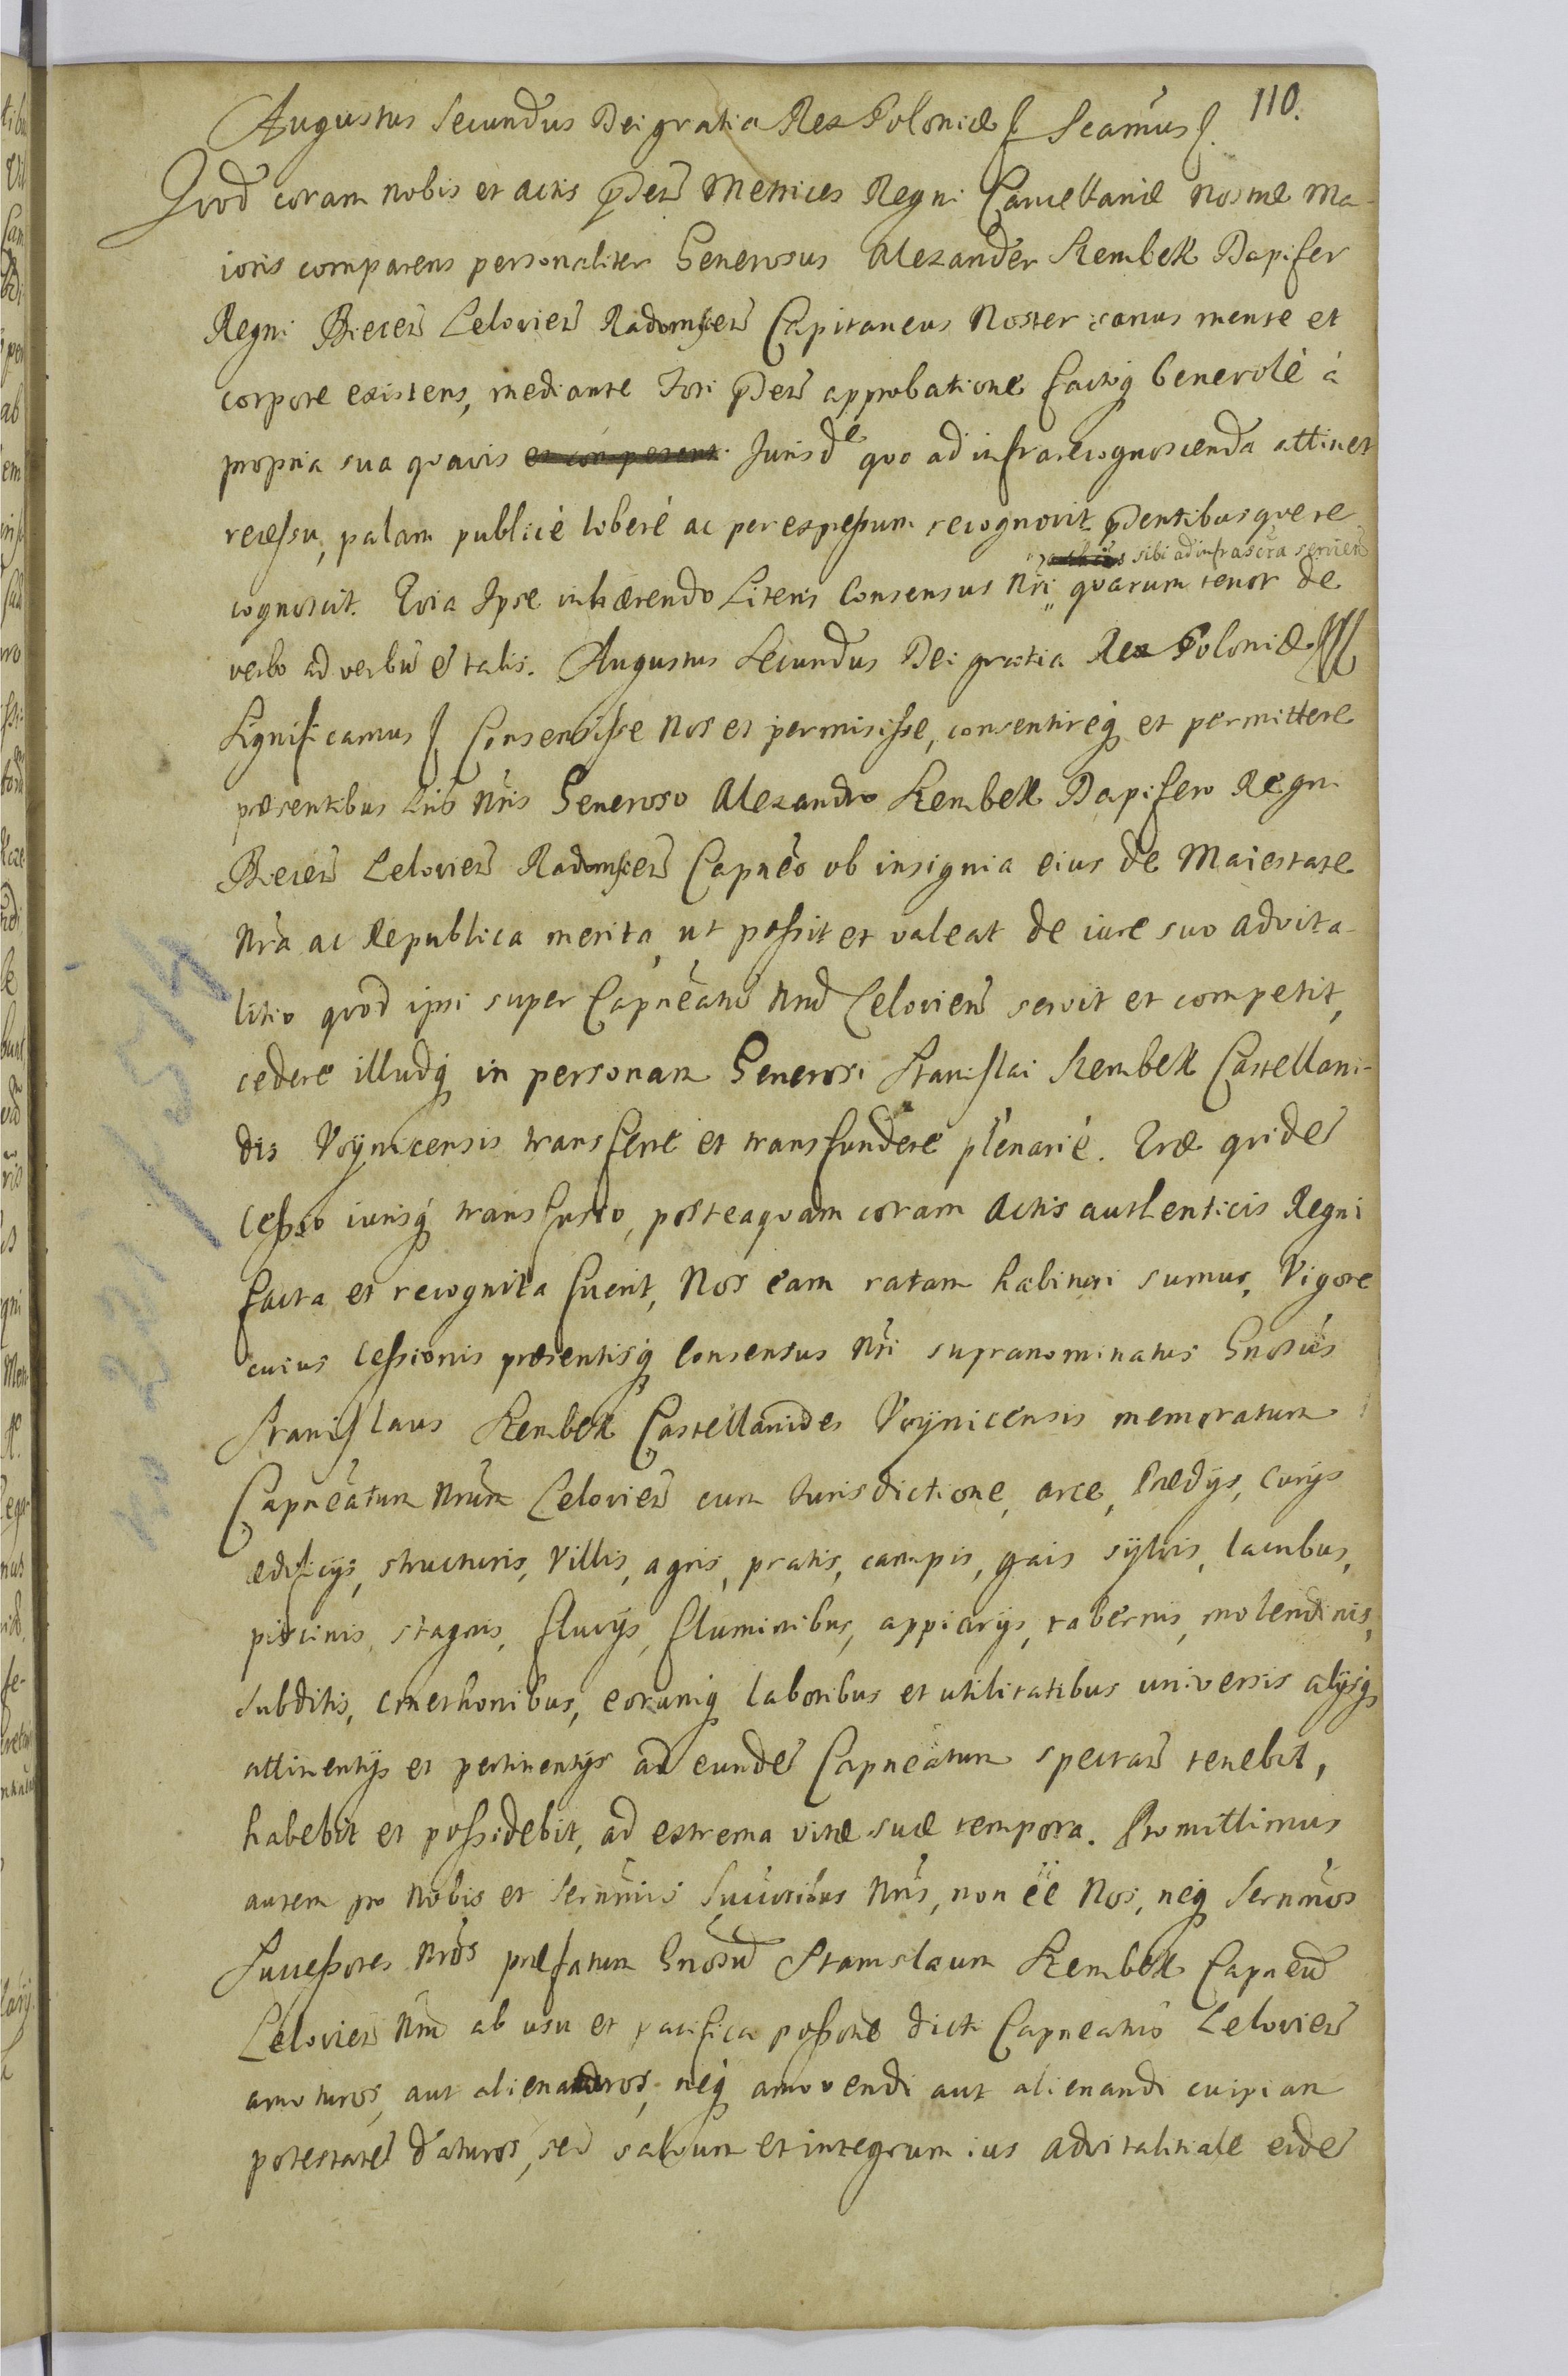 110.
Augustus Secundus Dei gratia Rex Poloniæ Scamus
Quod coram nobis et actis p̃señ Metrices Regni Cancellariæ Nostræ Ma-
ioris comparens personaliter Generosus Alexander Szembek Dapifer
Regni Biecen̄ Lelovien̄ Radomscen̄ Capitaneus Noster sanus mente et
corpore existens, mediante fori p̃señ approbatione factiq̃ benevolè à
propria sua quavis Jurisde quo ad infrarecognoscenda attinet
recessu, palam publicè liberè ac per expressum recognovit p̃sentibusque re
sibi ad infrascrā servien̄
cognoscit. Quia Ipse inhærendo Literis Consensus Nr̄i quarum tenor de
verbo ad verbū ē talis. Augustus Secundus Dei gratia Rex Poloniæ
Significamus Consensisse Nos et permisisse, consentireq̃ et permittere
præsentibus Lrīs Nr̄is Generoso Alexandro Szembek Dapifero Regni
Biecen̄ Lelovien̄ Radomscen̄ Capnēo ob insignia eius de Maiestate
Nr̄a ac Republica merita, ut possit et valeat de iure suo advita-
litio quod ipsi super Capnēatū Nrm̄ Lelovien̄ servit et competit,
cedere illudq̃ in personam Generosi Stanislai Szembek Castellani-
dis Voynicensis transferre et transfundere plenariè. Quæ quidē
Cessio iurisq̃ transfusio, posteaquam coram Actis authenticis Regni
facta et recognita fuerit, Nos eam ratam habituri sumus, Vigore
cuius Cessionis præsentisq̃ Consensus Nr̄i supranominatus Gnosūs
Stanislaus Szembek Castellanides Voynicensis memoratum
Capnēatum Nrūm Lelovien̄ cum Jurisdictione, arce, Prædijs, Curijs
ædificijs, structuris, Villis, agris, pratis, campis, gais sylvis, lacubus,
piscinis, stagnis, fluvijs, fluminibus, appiarijs, tabernis, molendinis,
Subditis, Cmethonibus, eorumq̃ laboribus et utilitatibus universis alijsq̃
attinentijs et pertinentijs ad eundē Capnēatum spectan̄ tenebit,
habebit et possidebit, ad extrema vitæ suæ tempora. Promittimus
autem pro Nobis et Sernīmis Succribus Nr̄is, non ēe Nos, neq̃ Sernīmos
Successores Nrōs præfatum Gnosū Stanislaum Szembek Capneū
Lelovien̄ Nrm̄ ab usu et pacifica possone dicti Capneatus Lelovien̄
amoturos, aut alienaturos, neq̃ amovendi aut alienandi cuipiam
potestatē daturos, sed salvum et integrum ius advitalitiale eidē